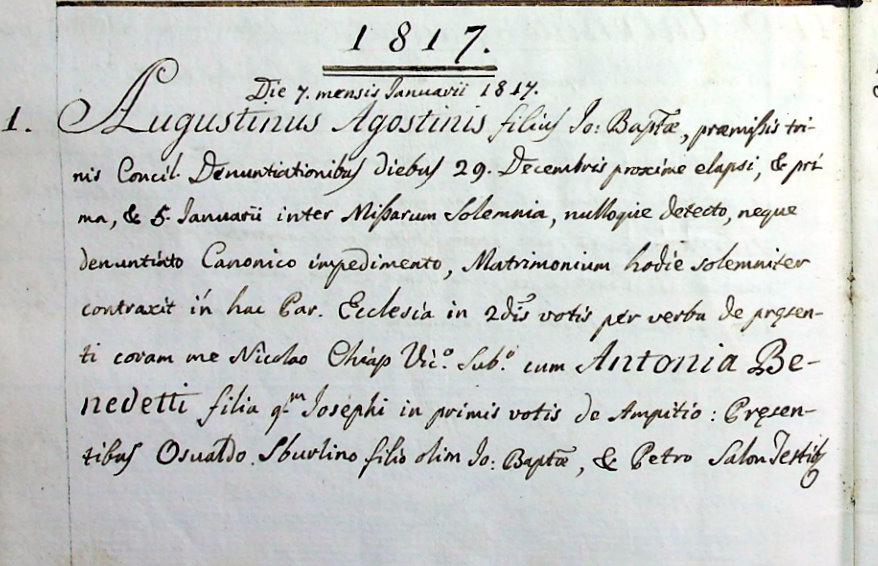 1817.
Die 7. mensis Januarii 1817.
1. Augustinus Agostinis filius Jo: Baptæ, præmissis tri-
nis Concil. Denuntiationibus diebus 29. Decembris proxime elapsi, & pri
ma, & 5. Januarii inter Missarum Solemnia, nulloque detecto, neque
denuntiato Canonico impedimento, Matrimonium hodie solemniter
contraxit in hac Par. Ecclesia in 2dis votis per verba de pręsen-
ti coram me Nicolao Chiap Vic.º Sub.º cum Antonia Be-
nedetti filia q.m Josephi in primis votis de Ampitio: Pręsen-
tibus Osualdo Sburlino filio olim Jo: Baptæ, & Petro Salon Testib